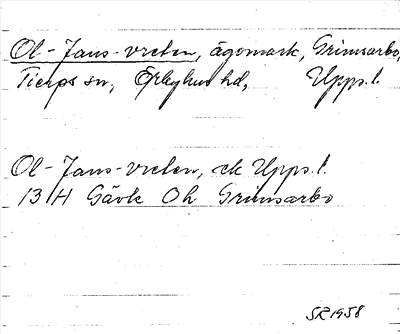 Ol-Jans-vreten, ägomark, Grimsarbo,
Tierps sn, Örbyhus hd, Upps. l.
Ol-Jans-vreten, ek Upps. l.
13 H Gävle Oh Grimsarbo
SR 1958